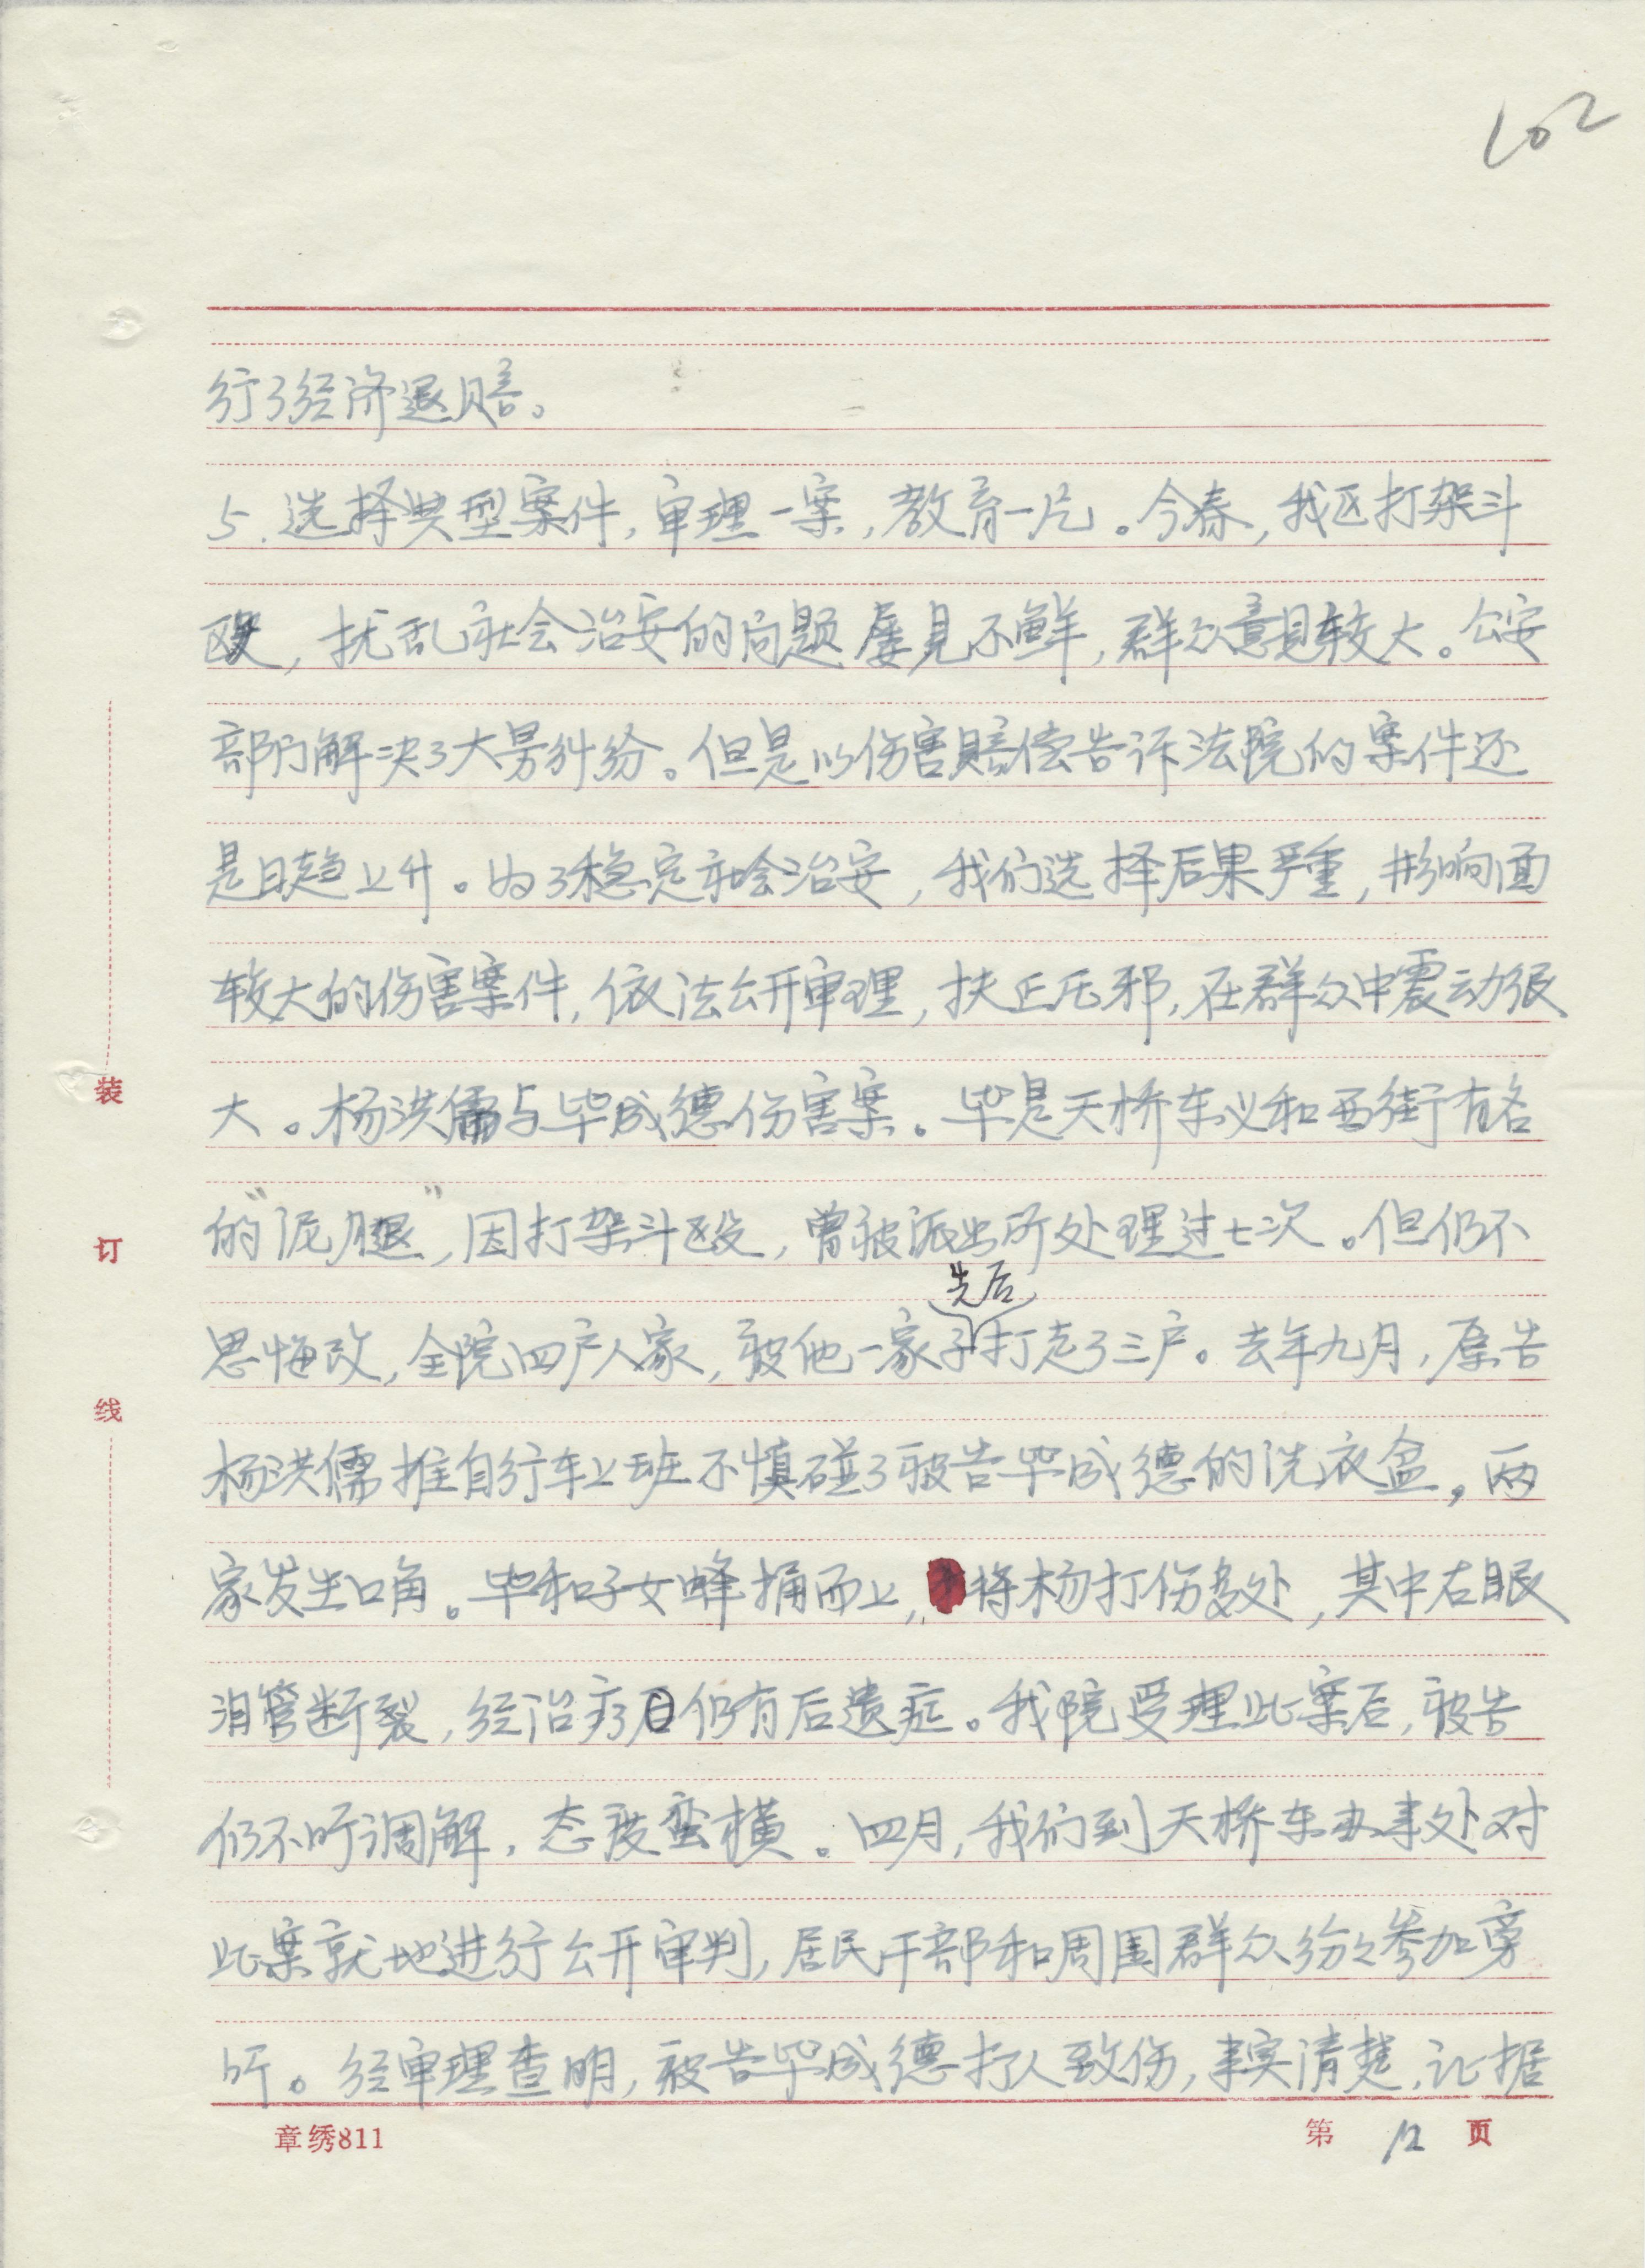 102
行了经济退赔。
5.选择典型案件,审理一案,教育一片。今春,我区打架斗
殴,扰乱社会治安的问题屡见不鲜,群众意见较大。公安
部门解决了大量纠纷。但是以伤害赔偿告诉法院的案件还
是日趋上升。为了稳定社会治安,我们选择后果严重,影响面
较大的伤害案件,依法公开审理,扶正压邪,在群众中震动很
大。杨洪儒与毕成德伤害案。毕是天桥东义和西街有名
的“泥腿”,因打架斗殴,曾被派出所处理过七次。但仍不
先后
思悔改,全院四户人家,被他一家子打走了三户。去年九月,原告
杨洪儒推自行车上班不慎碰了被告毕成德的洗衣盆,两
家发生口角。毕和子女蜂捅而上,将杨打伤多处,其中右眼
泪管断裂,经治疗后仍有后遗症。我院受理此案后,被告
仍不听调解,态度蛮横。四月,我们到天桥东办事处对
此案就地进行公开审判,居民干部和周围群众纷々参加旁
听。经审理查明,被告毕成德打人致伤,事实清楚,证据
装
订
线
章绣811
第 12 页